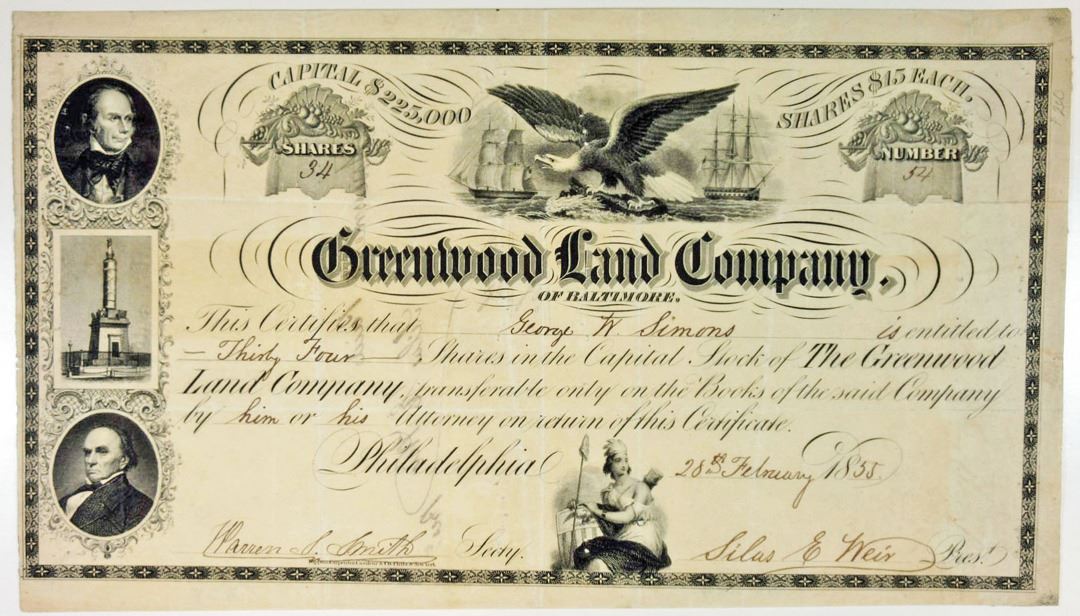 CAPITAL $225,000
SHARES $15 EACH.
SHARES
34
NUMBER
54
Greenwood Land Company,
OF BALTIMORE.
This Certifies that George W Simons is entitled to
— Thirty Four — Shares in the Capital Stock of The Greenwood
Land Company, transferable only on the Books of the said Company
by him or his Attorney on return of this Certificate.
Philadelphia 28th February 1855.
Warren S. Smith Secty. Silas E Weir Prest.